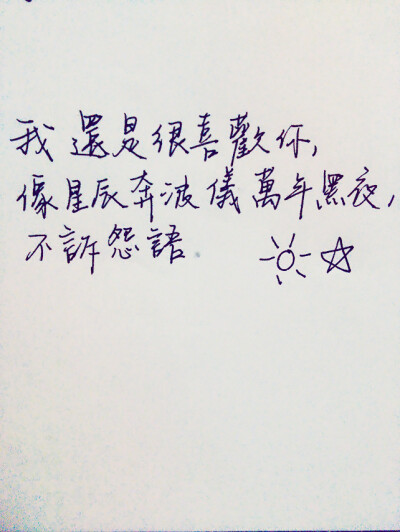 我還是很喜歡你,
像星辰奔波儀萬年黑夜,
不訴怨語